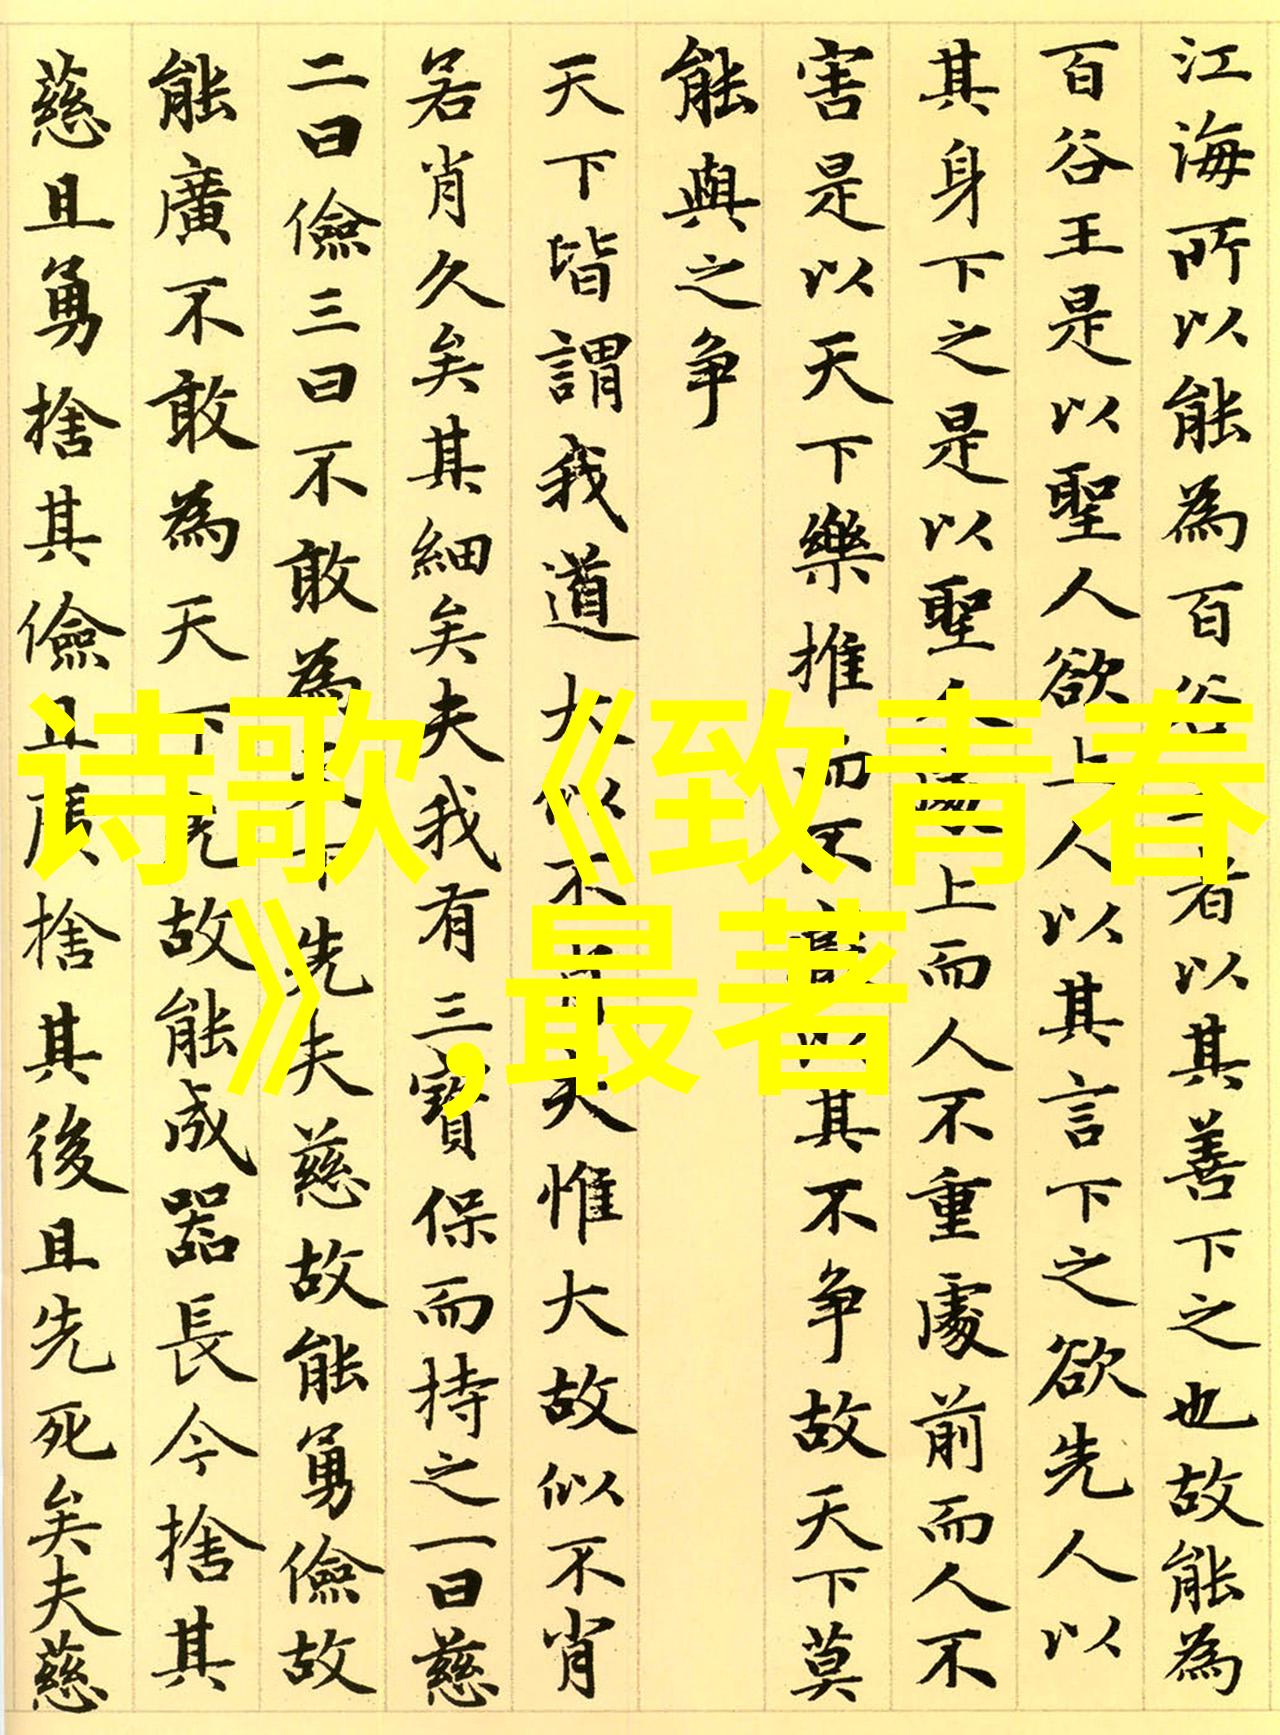 江海所以能為百谷者以其善下之也故能為
百谷王是以聖人欲上人以其言下之欲先人以
其身下之是以聖人處上而人不重處前而人不
害是以天下樂推而不厭以其不争故天下莫
能與之争
天下皆謂我道大似不肖夫惟大故似不肖
若肖久矣其細矣夫我有三寶保而持之一曰慈
二曰儉三曰不敢為天下先夫慈故能勇儉故
能廣不敢為天下先故能成器長今捨其
慈且勇捨其儉且廣捨其後且先死矣夫慈
诗歌《致青春
》,最著